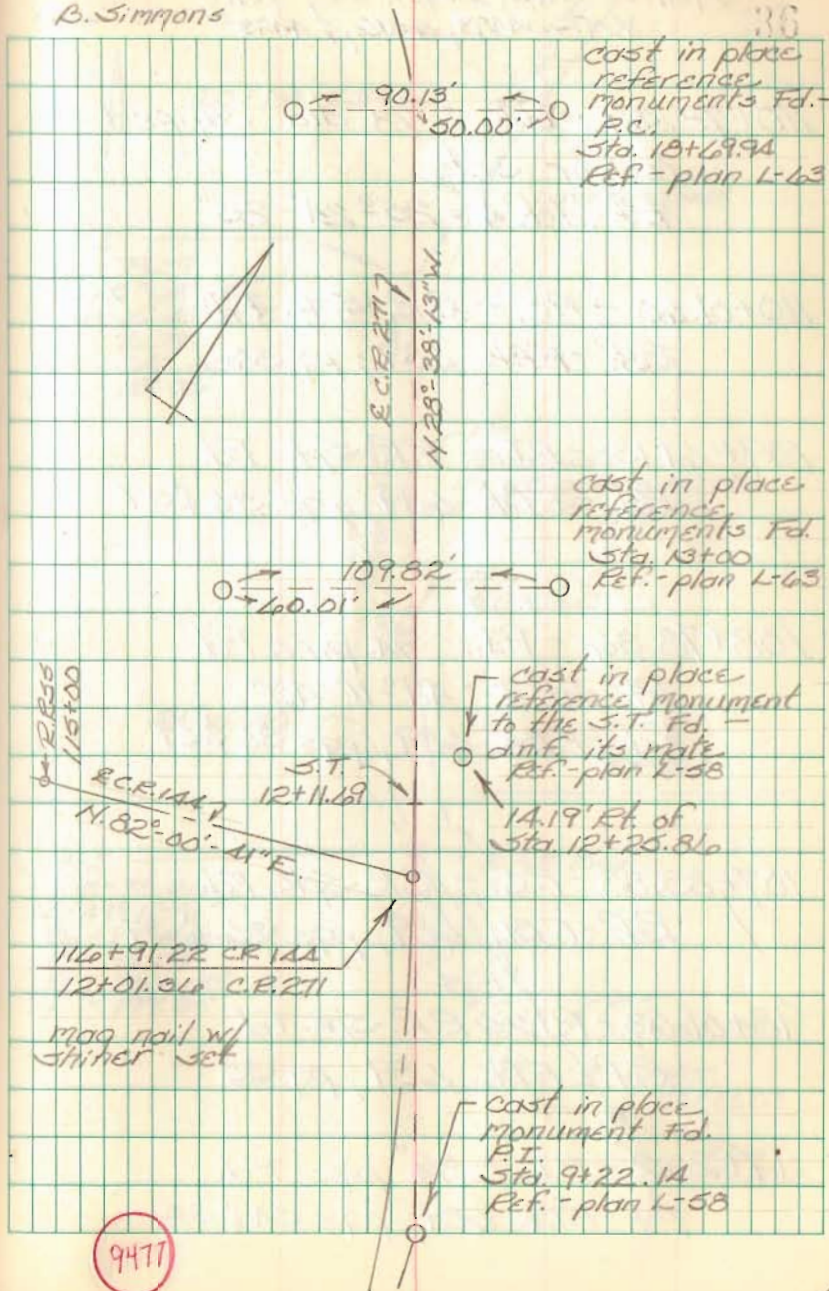 B. Simmons
36
90.13'
50.00'
cast in place
reference
monuments Fd.-
P.C.
Sta. 18+69.94
Ref.-plan L-63
C.R. 271
N.28°-38'-13"W.
cast in place
reference
monuments Fd.
Sta. 13+00
Ref.-plan L-63
109.82'
60.01'
cast in place
reference monument
to the S.T. Fd. -
d.n.f. its mate
Ref.-plan L-58
115+00
S.T.
12+11.69
C.R. 144
N.82°-00'-41"E.
14.19' Rt. of
Sta. 12+25.86
116+91.22 C.R. 144
12+01.36 C.R. 271
mag nail w/
shiner set
cast in place
monument Fd.
P.I.
Sta. 9+22.14
Ref.-plan L-58
9477